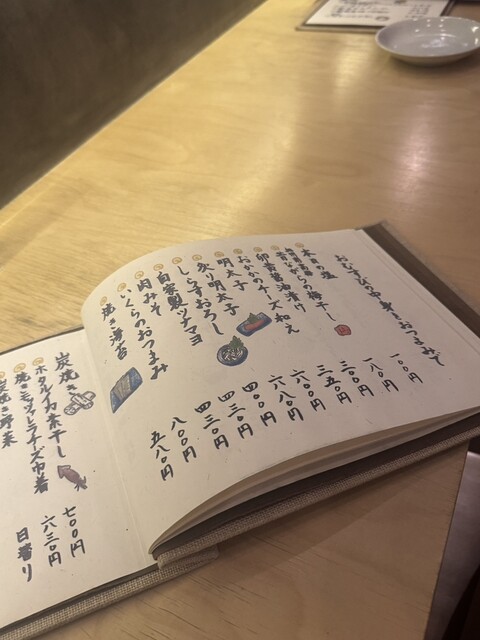 おむすびの中身をおつまみで
本日の塩 一〇〇円
昔ながらの梅干し 一八〇円
卵黄醤油漬け 三〇〇円
おかかのチーズ和え 三五〇円
明太子 六〇〇円
炙り明太子 六八〇円
しらすおろし 四〇〇円
自家製ツナマヨ 四三〇円
肉みそ 四三〇円
いくらのおつまみ 八〇〇円
焼き海苔 五八〇円
炭焼き
ホタルイカ素干し 七〇〇円
焼きモッツァレラチーズ巾着 六三〇円
炭焼き野菜 日替り